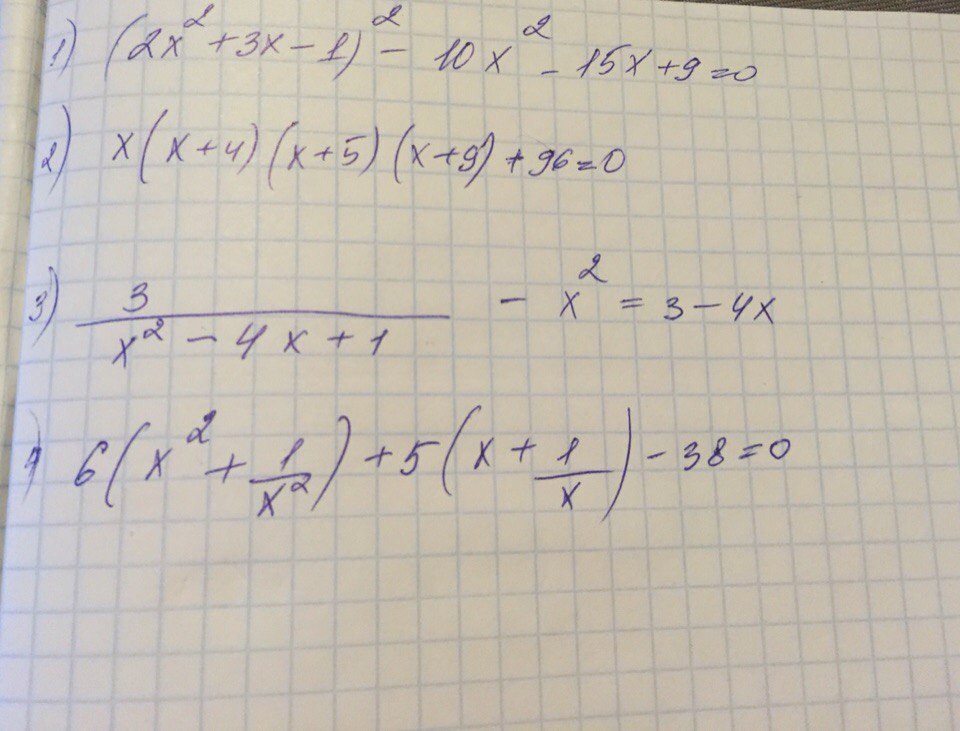 1) (2x² + 3x − 1)² − 10x² − 15x + 9 = 0
2) x(x + 4)(x + 5)(x + 9) + 96 = 0
3) 3/(x² − 4x + 1) − x² = 3 − 4x
4) 6(x² + 1/x²) + 5(x + 1/x) − 38 = 0